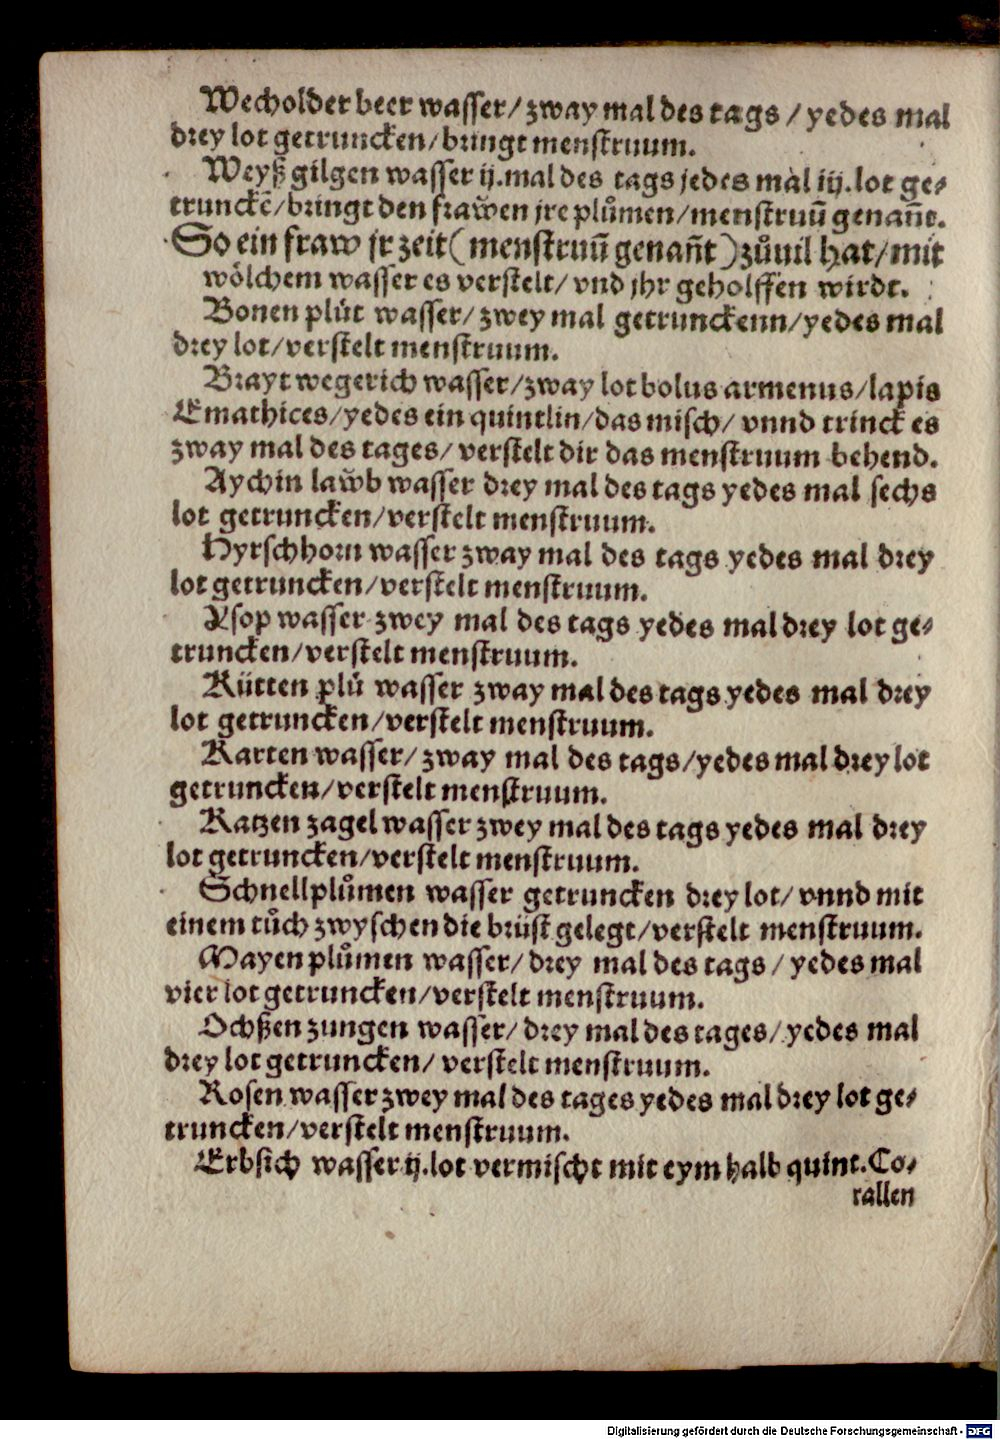 Wecholder beer wasser/ zway mal des tags / yedes mal
drey lot getruncken/ bringt menstruum.
Weyß gilgen wasser ij. mal des tags jedes mal iij. lot ge⸗
trunckẽ/ bringt den frawen jre plůmen/ menstruũ genañt.
So ein fraw jr zeit (menstruũ genañt) zůuil hat/ mit
wölchem wasser es verstelt/ vnd jhr geholffen wirdt.
Bonen plüt wasser/ zwey mal getrunckenn/ yedes mal
drey lot/ verstelt menstruum.
Brayt wegerich wasser/ zway lot bolus armenus/ lapis
Emathices/ yedes ein quintlin/ das misch/ vnnd trinck es
zway mal des tages/ verstelt dir das menstruum behend.
Aychin law̌b wasser drey mal des tags yedes mal sechs
lot getruncken/ verstelt menstruum.
Hyrschhorn wasser zway mal des tags yedes mal drey
lot getruncken/ verstelt menstruum.
Ysop wasser zwey mal des tags yedes mal drey lot ge⸗
truncken/ verstelt menstruum.
Kütten plü wasser zway mal des tags yedes mal drey
lot getruncken/ verstelt menstruum.
Karten wasser/ zway mal des tags/ yedes mal drey lot
getruncken/ verstelt menstruum.
Katzen zagel wasser zwey mal des tags yedes mal drey
lot getruncken/ verstelt menstruum.
Schnellplůmen wasser getruncken drey lot/ vnnd mit
einem tůch zwyschen die brüst gelegt/ verstelt menstruum.
Mayen plůmen wasser/ drey mal des tags / yedes mal
vier lot getruncken/ verstelt menstruum.
Ochßen zungen wasser/ drey mal des tages/ yedes mal
drey lot getruncken/ verstelt menstruum.
Rosen wasser zwey mal des tages yedes mal drey lot ge⸗
truncken/ verstelt menstruum.
Erbsich wasser ij. lot vermischt mit eym halb quint. Co⸗
rallen
Digitalisierung gefördert durch die Deutsche Forschungsgemeinschaft - DFG